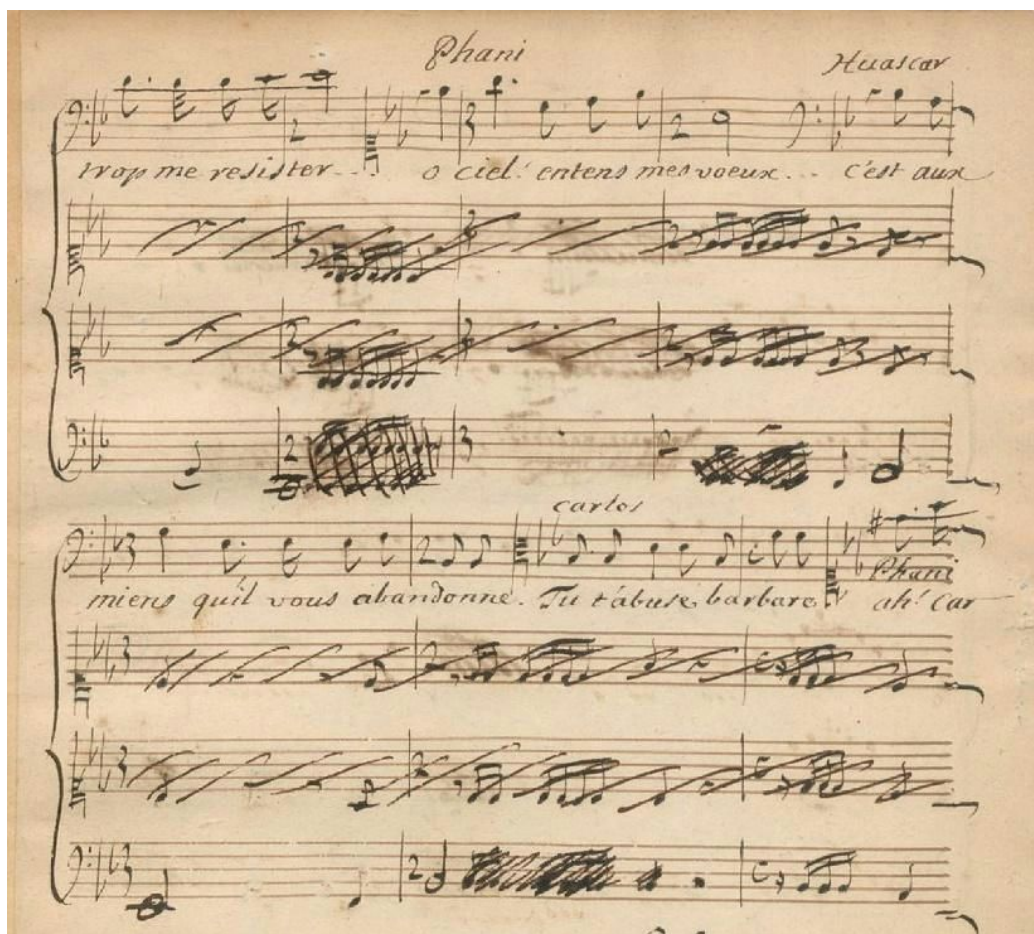 Phani Huascar
trop me resister... o ciel! entens mes voeux... c'est aux
carlos
miens qu'il vous abandonne. Tu t'abuse barbare ah! Car
Phani